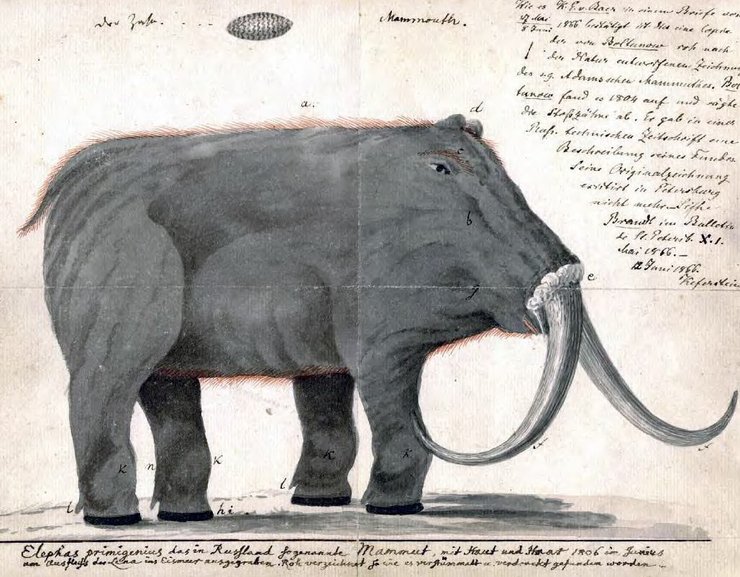 der Zahn. . . .
Mammouth.
Wie K. E. v. Baer in einem Briefe vom
27 Mai
8 Juni 1866 bestätigt ist dies eine Copie
der von Boltunow roh nach
der Natur entworfenen Zeichnung
des sg. Adamsschen Mammuthes. Bol-
tunow fand es 1804 auf und sägte
die Stoßzähne ab. Er gab in einer
Russ. technischen Zeitschrift eine
Beschreibung seines Fundes.
Seine Originalzeichnung
existirt in Petersburg
nicht mehr. Siehe
Brandt im Bulletin
de St. Petersb. X. 1.
Mai 1866. —
12 Juni 1866.
Keferstein
a.
d
c
b
g
e
f
f
k
n
k
k
k
l
l
h i .
Elephas primigenius das in Russland sogenannte Mammut, mit Haut und Haar 1806 im Junius
am Ausfluss der Lena ins Eismeer ausgegraben. Roh verzeichnet so wie es verstümmelt u. verdreckt gefunden worden.